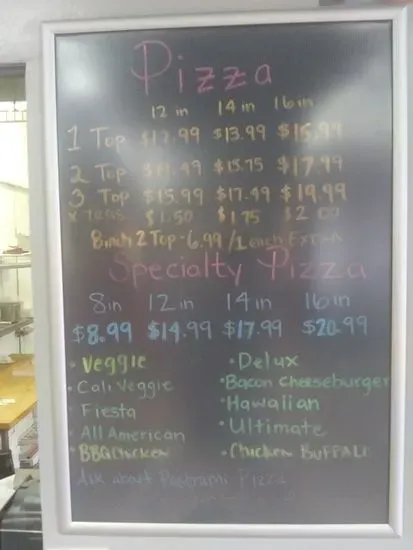 Pizza
12 in 14 in 16 in
1 Top $13.99 $15.99
2 Top $15.75 $17.99
3 Top $15.99 $17.49 $19.99
$1.50 $1.75 $2.00
8 inch 2 Top - 6.99 / 1 each Extra
Specialty Pizza
8 in 12 in 14 in 16 in
$8.99 $14.99 $17.99 $20.99
• Veggie • Delux
• Cali Veggie • Bacon Cheeseburger
• Fiesta • Hawaiian
• All American • Ultimate
• BBQ Chicken • Chicken BUFFALO
Ask about Pastrami Pizza